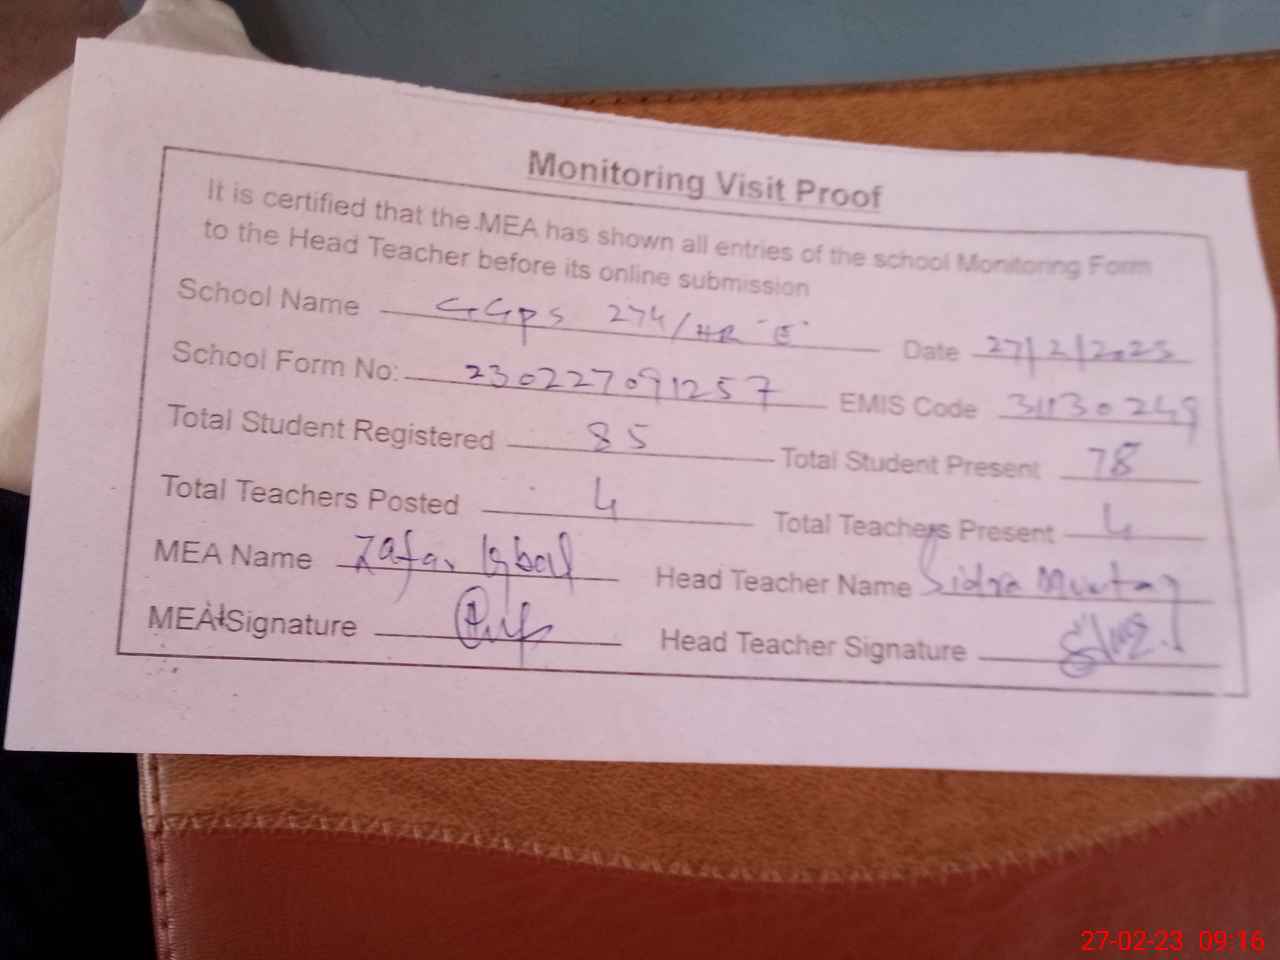 Monitoring Visit Proof
It is certified that the MEA has shown all entries of the school Monitoring Form
to the Head Teacher before its online submission
School Name GGPS 274/HR "E" Date 27/2/2023
School Form No: 230227091257 EMIS Code 31130249
Total Student Registered 85 Total Student Present 78
Total Teachers Posted 4 Total Teachers Present 4
MEA Name Zafar Iqbal Head Teacher Name Sidra Mumtaz
MEA Signature Head Teacher Signature
27-02-23 09:16